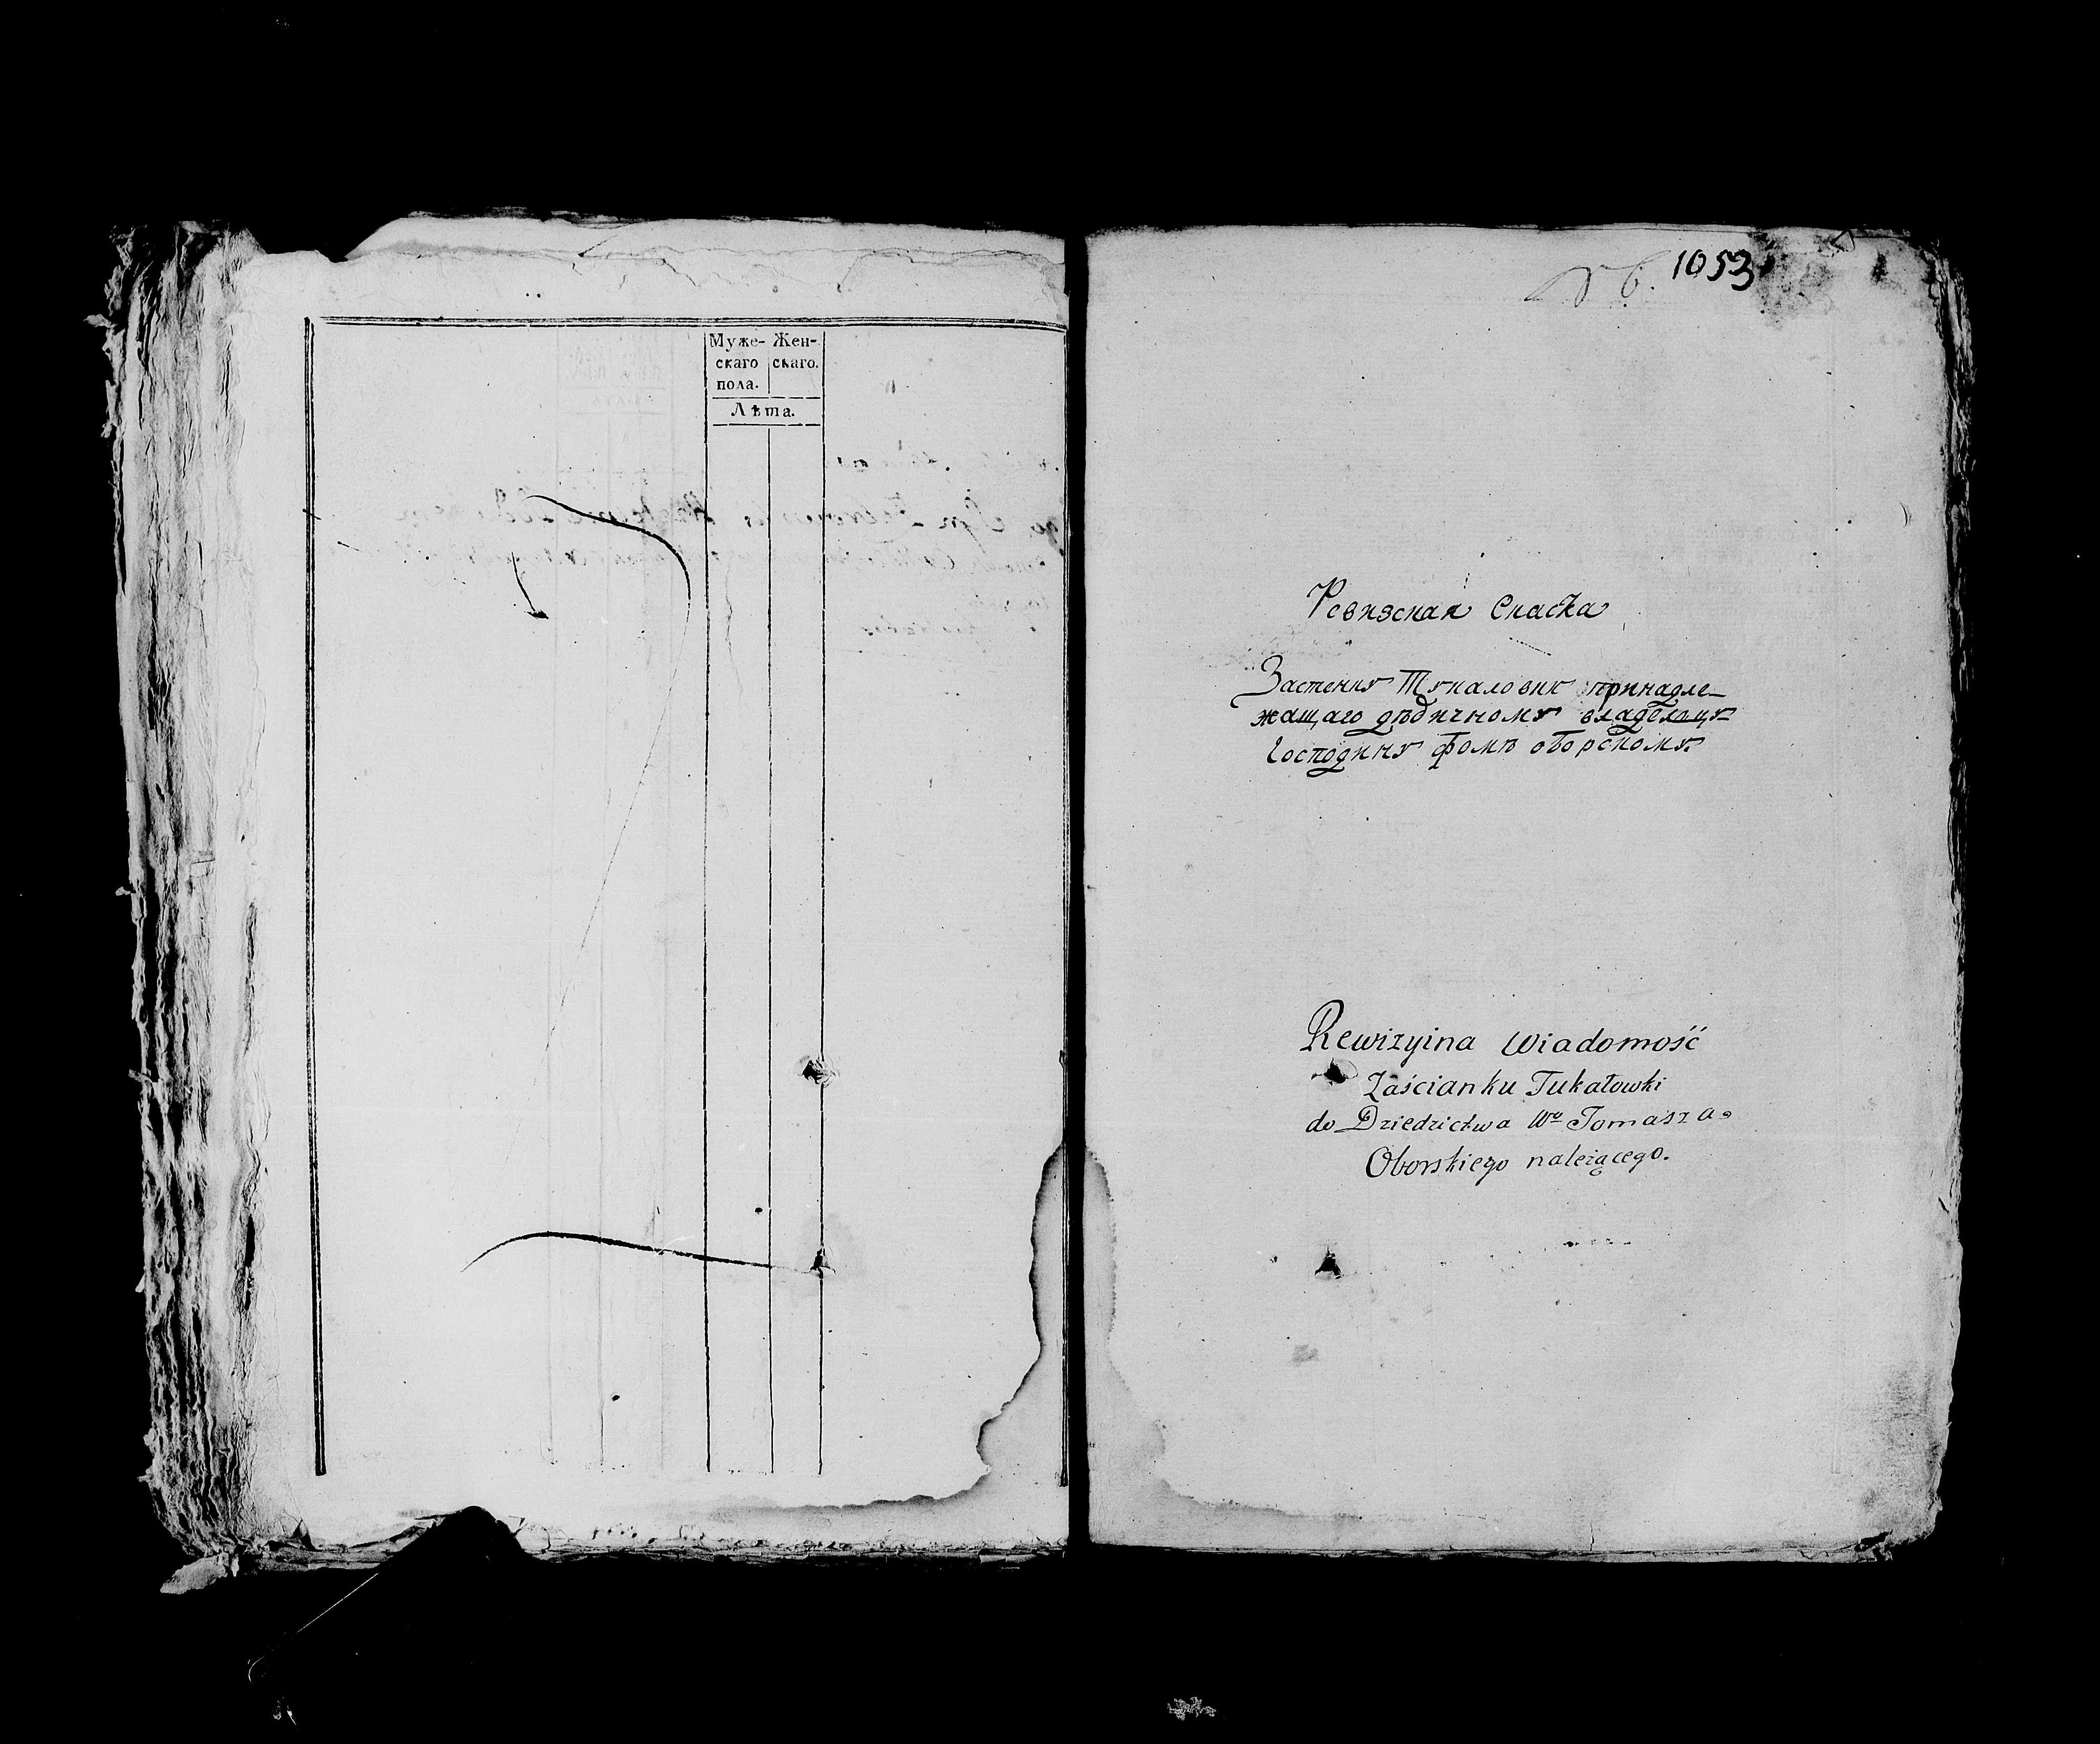 Муже- Жен-
скаго скаго.
пола.
Лѣта.
1053
Ревизская Сказка
Застенку Тукаловки принадле-
жащаго дѣдичному владельцу
Господину Фомѣ оборскому
Rewizyina Wiadomość
Zaścianku Tukałowki
do Dziedzictwa Wo Tomasza
Oborskiego należącego.